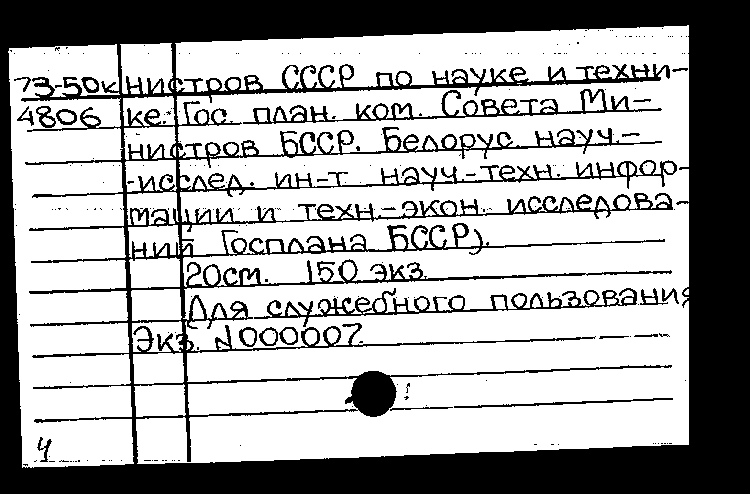 73-50к нистров СССР по науке и техни-
4806 ке. Гос. план. ком. Совета Ми-
нистров БССР. Белорус. науч.-
-исслед. ин-т науч.-техн. инфор-
мации и техн.-экон. исследова-
ний Госплана БССР).
20см. 150 экз.
Для служебного пользования
Экз. N000007.
4